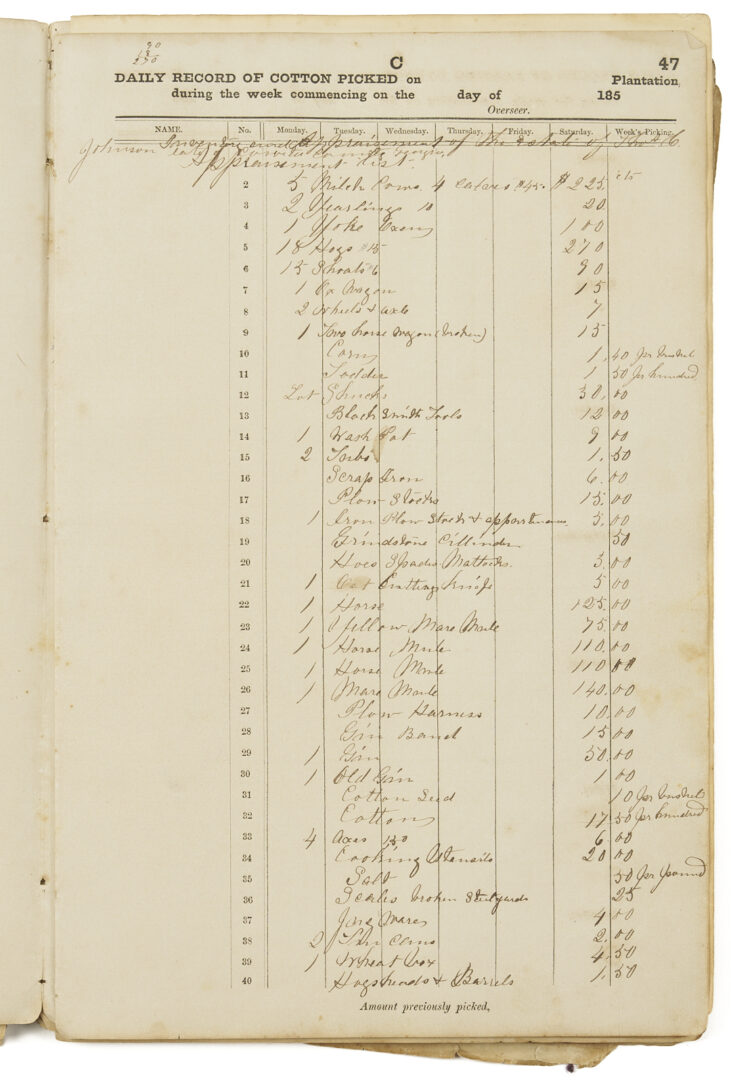 C
47
DAILY RECORD OF COTTON PICKED on Plantation,
during the week commencing on the day of 185
Overseer.
NAME. No. Monday. Tuesday. Wednesday. Thursday. Friday. Saturday. Week's Picking.
Johnson Inventory and Appraisement of the Estate of
Appraisement List.
2 5 Milch Cows 4 Calves $45. $225. cts
3 2 Yearlings 10 20
4 1 Yoke Oxen 100
5 18 Hogs $15 270
6 15 Shoats $6 90
7 1 Ox Wagon 15
8 2 Wheels & axle 7
9 1 Two horse wagon (broken) 15
10 Corn 1.40 per bushel
11 Fodder 1 50 per hundred
12 Lot Shucks 30.00
13 Black Smith Tools 12 00
14 1 Wash Pot 9 00
15 2 Tubs 1.50
16 Scrap Iron 6.00
17 Plow Stocks 15.00
18 1 Iron Plow Stock & 5.00
19 Grindstone Cillinder 50
20 Hoes Spades Mattocks 3.00
21 1 Oat Cutting knife 5 00
22 1 Horse 125.00
23 1 Yellow Mare Mule 75.00
24 1 Horse Mule 110.00
25 1 Horse Mule 110 00
26 1 Mare Mule 140.00
27 Plow Harness 10.00
28 Gin Band 15 00
29 1 Gin 50.00
30 1 Old Gin 1 00
31 Cotton Seed 10 per bushel
32 Cotton 17 50 per hundred
33 4 Axes 1.50 6.00
34 Cooking Utensils 20 00
35 Salt 50 per pound
36 Scales broken Steelyards 25
37 Wares 4 00
38 2 Tin Cans 2.00
39 1 Wheat box 4.50
40 Hogsheads & Barrels 1.50
Amount previously picked,